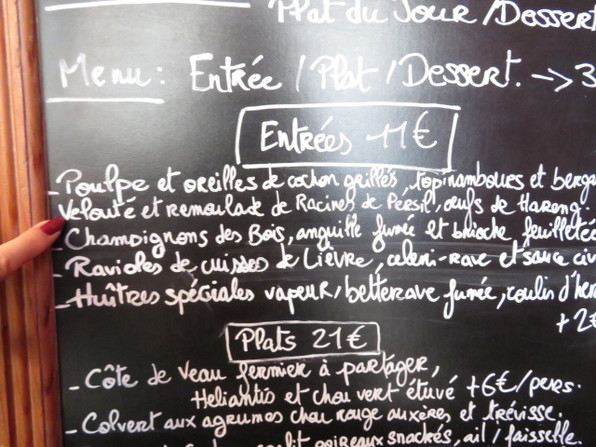 Plat du Jour / Dessert
Menu: Entrée / Plat / Dessert. → 3
Entrées 11€
- Poulpe et oreilles de cochon grillés, topinamboues et berga
- Velouté et remoulade de Racines de Persil, œufs de Hareng.
- Champignons des Bois, anguille fumée et brioche feuilletée
- Ravioles de cuisses de Lièvre, celeri-rave et sauce civ
- Huîtres spéciales vapeur, betterave fumée, coulis d'her
+ 2€
Plats 21€
- Côte de Veau fermier à partager,
Heliantis et chou vert étuvé +6€/pers.
- Colvert aux agrumes chou rouge auxères et trévisse.
poireaux snackés, ail / faisselle.